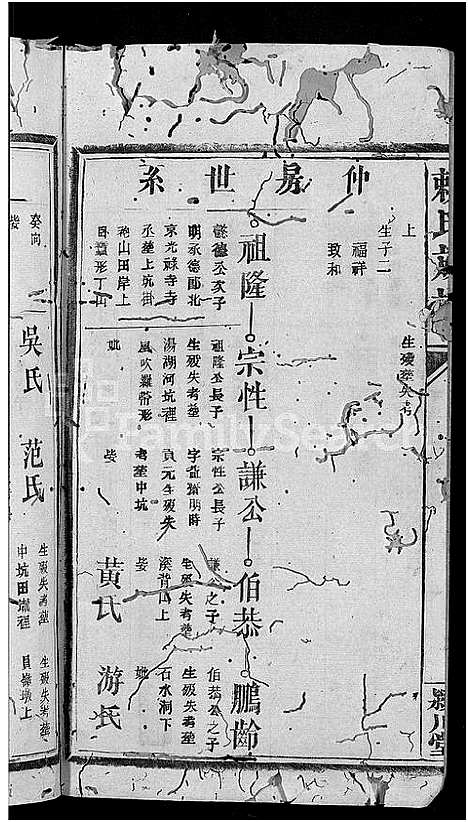 賴氏族譜
潁川堂
仲房世系
上
生子二
福祥
致和
生歿葬失考
祖隆
宗性
謙公
伯恭
鵬齡
懿德公次子
明承德郎北
京光祿寺寺
丞葬上坑掛
袍山田岸上
日葬形丁山
祖隆公長子
生歿失考葬
湯湖河坑裡
風吹羅帶形
妣
宗性公長子
字益齋明時
貢元生歿失
考葬中坑
娶
謙公之子
生歿失考葬
溪背山上
娶
黃氏
伯恭公之子
生歿失考葬
石水洞下
妣
游氏
癸向
娶
吳氏
范氏
生歿失考葬
中坑田壠裡
生歿失考葬
員嶺墩上
FamilySearch